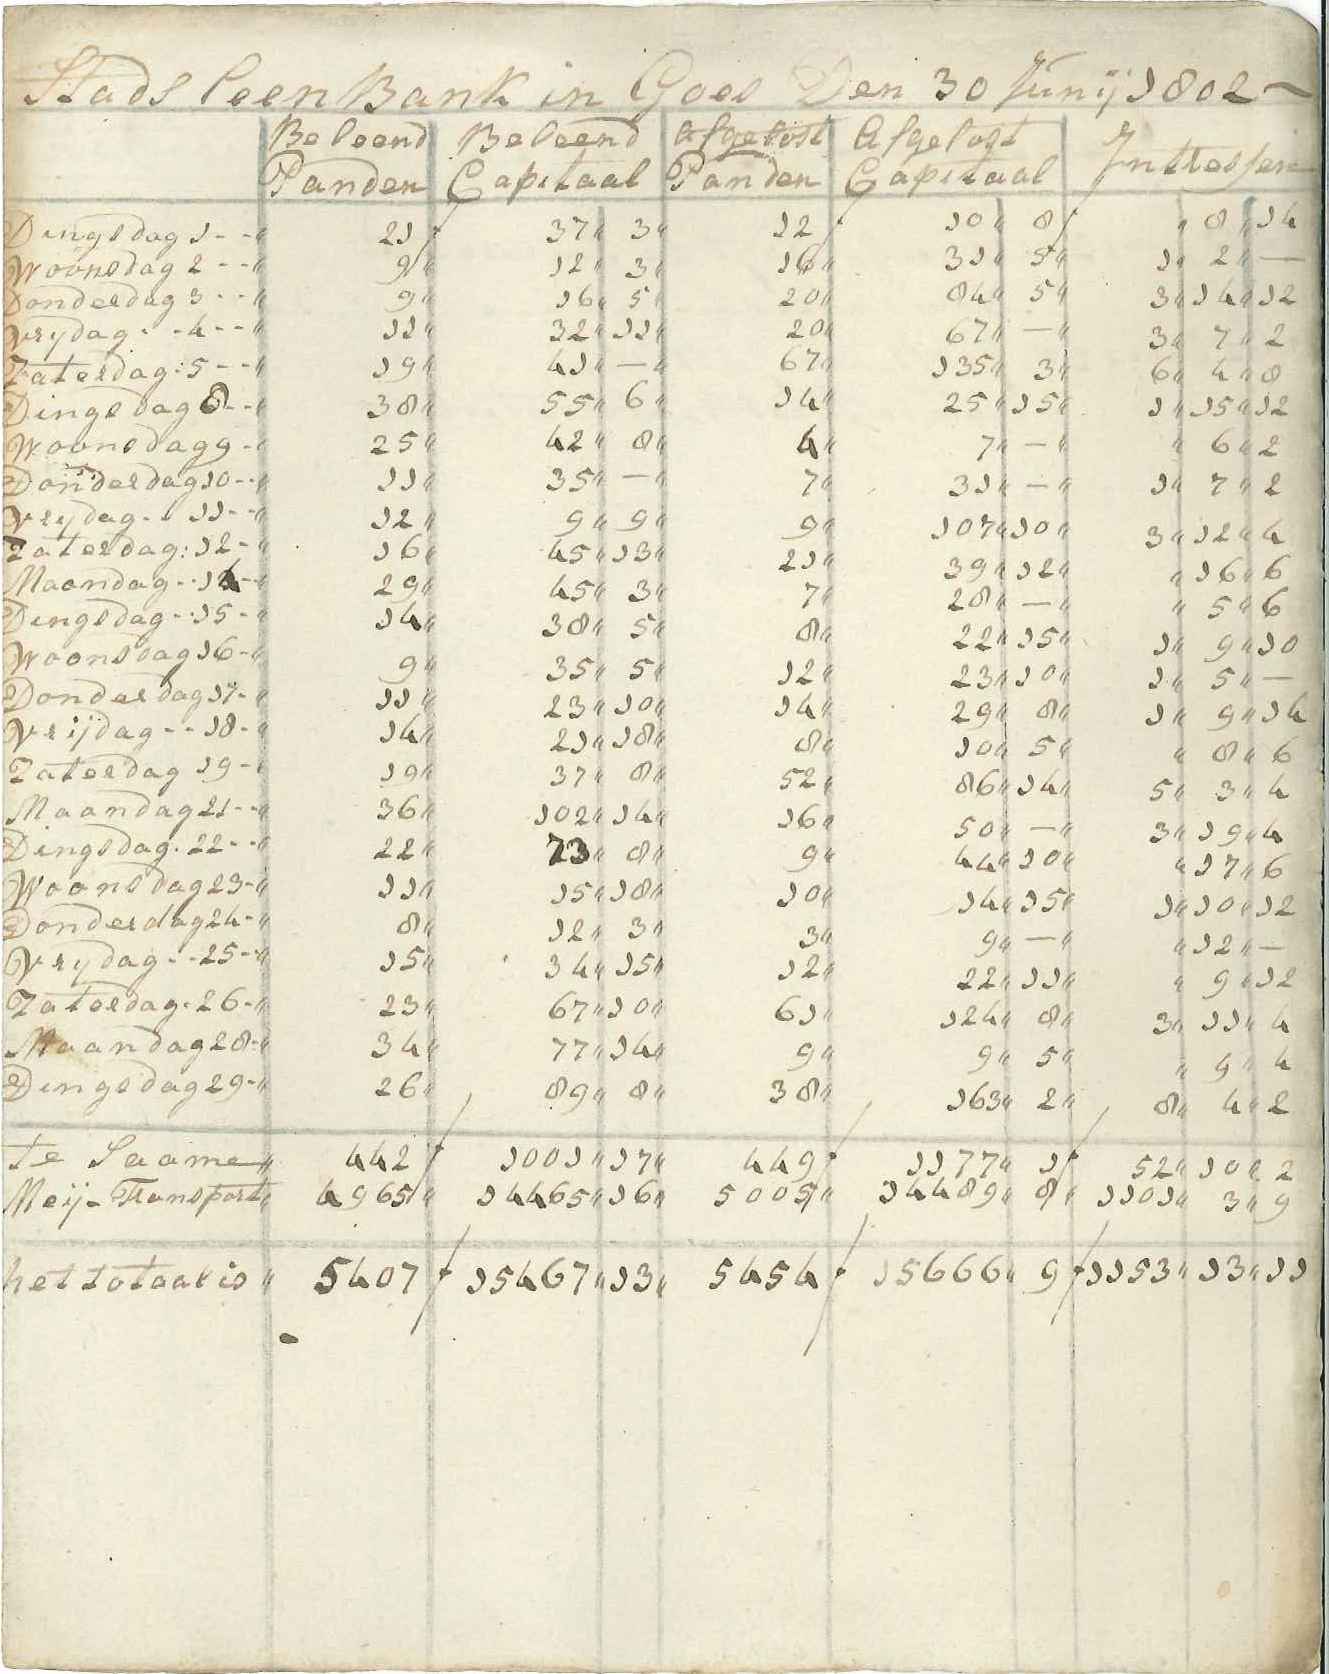 Stads leen Bank in Goes Den 30 Junij 1802 ~
Beleend Beleend Afgelost Afgelost Inttressen
Panden Capitaal Panden Capitaal
Dingsdag 1 - - " 21 " 37 " 3 " 12 10 " 8 " 8 " 14
Woonsdag 2 - - " 9 " 12 " 3 " 16 " 31 " 5 " 1 " 2 " —
Donderdag 3 - - " 9 " 16 " 5 " 20 " 84 " 5 " 3 " 14 " 12
Vrydag - - 4 - - " 11 " 32 " 11 " 20 " 67 " — " 3 " 7 " 2
Zaterdag : 5 - - " 19 " 41 " — " 67 " 135 " 3 " 6 " 4 " 8
Dingsdag 8 - - " 38 " 55 " 6 " 14 " 25 " 15 " 1 " 15 " 12
Woonsdag 9 - " 25 " 42 " 8 " 4 " 7 " — " " 6 " 2
Donderdag 10 - - " 11 " 35 " — " 7 " 31 " — " 1 " 7 " 2
Vrydag - - 11 - - " 12 " 9 " 9 " 9 " 107 " 10 " 3 " 12 " 4
Zaterdag : 12 - " 16 " 45 " 13 " 21 " 39 " 12 " " 16 " 6
Maandag - - 14 - - " 29 " 45 " 3 " 7 " 28 " — " " 5 " 6
Dingsdag - - 15 - " 14 " 38 " 5 " 8 " 22 " 15 " 1 " 9 " 10
Woonsdag 16 - " 9 " 35 " 5 " 12 " 23 " 10 " 1 " 5 " —
Donderdag 17 - " 11 " 23 " 10 " 14 " 29 " 8 " 1 " 9 " 14
Vrijdag - - 18 - " 14 " 21 " 18 " 8 " 10 " 5 " " 8 " 6
Zaterdag 19 - " 19 " 37 " 8 " 52 " 86 " 14 " 5 " 3 " 4
Maandag 21 - - " 36 " 102 " 14 " 16 " 50 " — " 3 " 19 " 4
Dingsdag . 22 - - " 22 " 73 " 8 " 9 " 44 " 10 " " 17 " 6
Woonsdag 23 - " 11 " 15 " 18 " 10 " 14 " 15 " 1 " 10 " 12
Donderdag 24 - " 8 " 12 " 3 " 3 " 9 " — " " 12 " —
Vrydag - - 25 - - " 15 " 34 " 15 " 12 " 22 " 11 " " 9 " 12
Zaterdag . 26 - " 23 " 67 " 10 " 61 " 124 " 8 " 3 " 11 " 4
Maandag 28 - " 34 " 77 " 14 " 9 " 9 " 5 " " 9 " 4
Dingsdag 29 - " 26 " 89 " 8 " 38 " 163 " 2 " 8 " 4 " 2
te Saame " 442 1001 " 17 " 449 1177 " 1 52 " 10 " 2
Meij - Transport " 4965 " 14465 " 16 " 5005 " 14489 " 8 " 1101 " 3 " 9
het totaal is " 5407 15467 " 13 " 5454 15666 " 9 1153 " 13 " 11